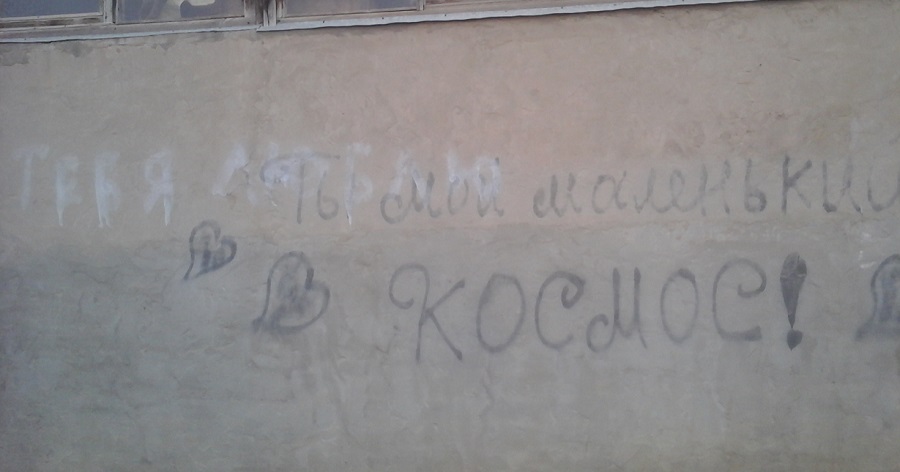 ТЕБЯ ЛЮБЛЮ
Ты мой маленький
КОСМОС!